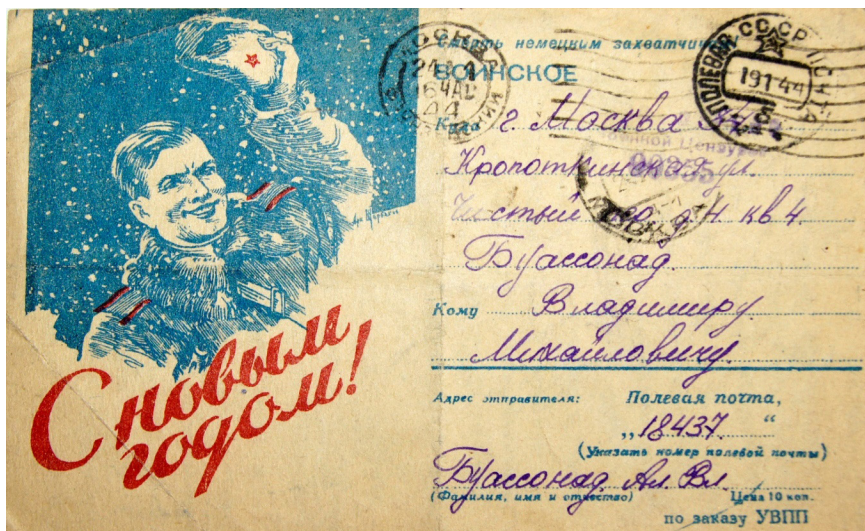 С новым
годом!
Смерть немецким захватчикам
ВОИНСКОЕ
Куда г. Москва 34
Кропоткинская ул.
Чистый пер. д. 4 кв 4.
Буассонад.
Кому Владимиру
Михайловичу.
Адрес отправителя: Полевая почта,
„18437.“
(Указать номер полевой почты)
Буассонад Ал. Вл.
(Фамилия, имя и отчество) Цена 10 коп.
по заказу УВПП
МОСКВА
44
СССР ПОЛЕВАЯ ПОЧТА
19 1 44
Военной Цензурой
МОСКВА